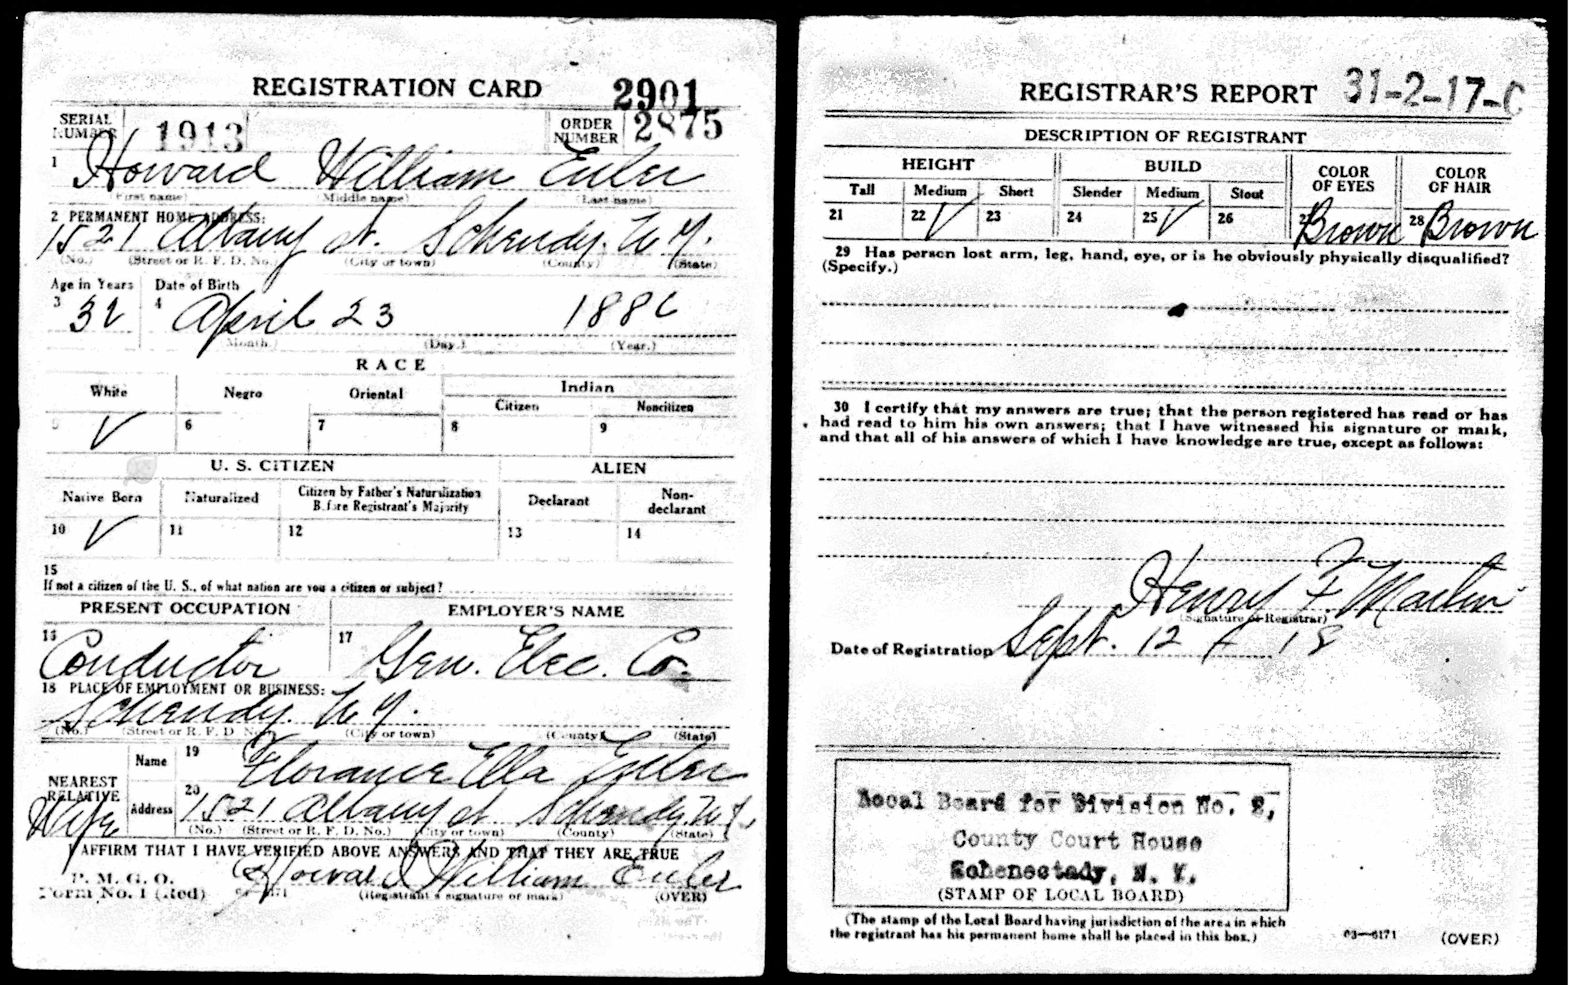 REGISTRATION CARD 2901
SERIAL NUMBER 1913 ORDER NUMBER 2875
1 Howard William Euler
(First name) (Middle name) (Last name)
2 PERMANENT HOME ADDRESS:
1521 Albany st. Schendy. N.Y.
(No.) (Street or R. F. D. No.) (City or town) (County) (State)
Age in Years Date of Birth
3 32 4 April 23 1886
(Month.) (Day.) (Year.)
RACE
White Negro Oriental Indian
Citizen Noncitizen
5 √ 6 7 8 9
U. S. CITIZEN ALIEN
Native Born Naturalized Citizen by Father's Naturalization Before Registrant's Majority Declarant Non-declarant
10 √ 11 12 13 14
15
If not a citizen of the U. S., of what nation are you a citizen or subject?
PRESENT OCCUPATION EMPLOYER'S NAME
16 Conductor 17 Gen. Elec. Co.
18 PLACE OF EMPLOYMENT OR BUSINESS:
Schendy. N.Y.
(No.) (Street or R. F. D. No.) (City or town) (County) (State)
NEAREST RELATIVE Wife
Name 19 Florance Ella Euler
Address 20 1521 Albany st Schendy N.Y.
(No.) (Street or R. F. D. No.) (City or town) (County) (State)
I AFFIRM THAT I HAVE VERIFIED ABOVE ANSWERS AND THAT THEY ARE TRUE
P. M. G. O.
Form No. 1 (Red) Howard William Euler
(Registrant's signature or mark) (OVER)
REGISTRAR'S REPORT 31-2-17-C
DESCRIPTION OF REGISTRANT
HEIGHT BUILD COLOR OF EYES COLOR OF HAIR
Tall Medium Short Slender Medium Stout
21 22 √ 23 24 25 √ 26 27 Brown 28 Brown
29 Has person lost arm, leg, hand, eye, or is he obviously physically disqualified?
(Specify.)
30 I certify that my answers are true; that the person registered has read or has
had read to him his own answers; that I have witnessed his signature or mark,
and that all of his answers of which I have knowledge are true, except as follows:
Henry F. Martin
(Signature of Registrar)
Date of Registration Sept. 12 18
Local Board for Division No. 2,
County Court House
Schenectady, N. Y.
(STAMP OF LOCAL BOARD)
(The stamp of the Local Board having jurisdiction of the area in which
the registrant has his permanent home shall be placed in this box.)
03—6171 (OVER)